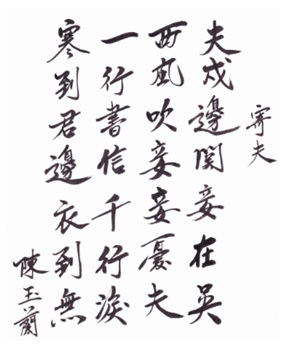 寄夫
夫戍邊関妾在吳
西風吹妾妾憂夫
一行書信千行淚
寒到君邊衣到無
陳玉蘭